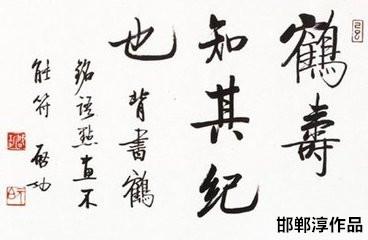 鶴壽
知其紀
也背書鶴
銘語點畫不
能符 啓功
邯郸淳作品